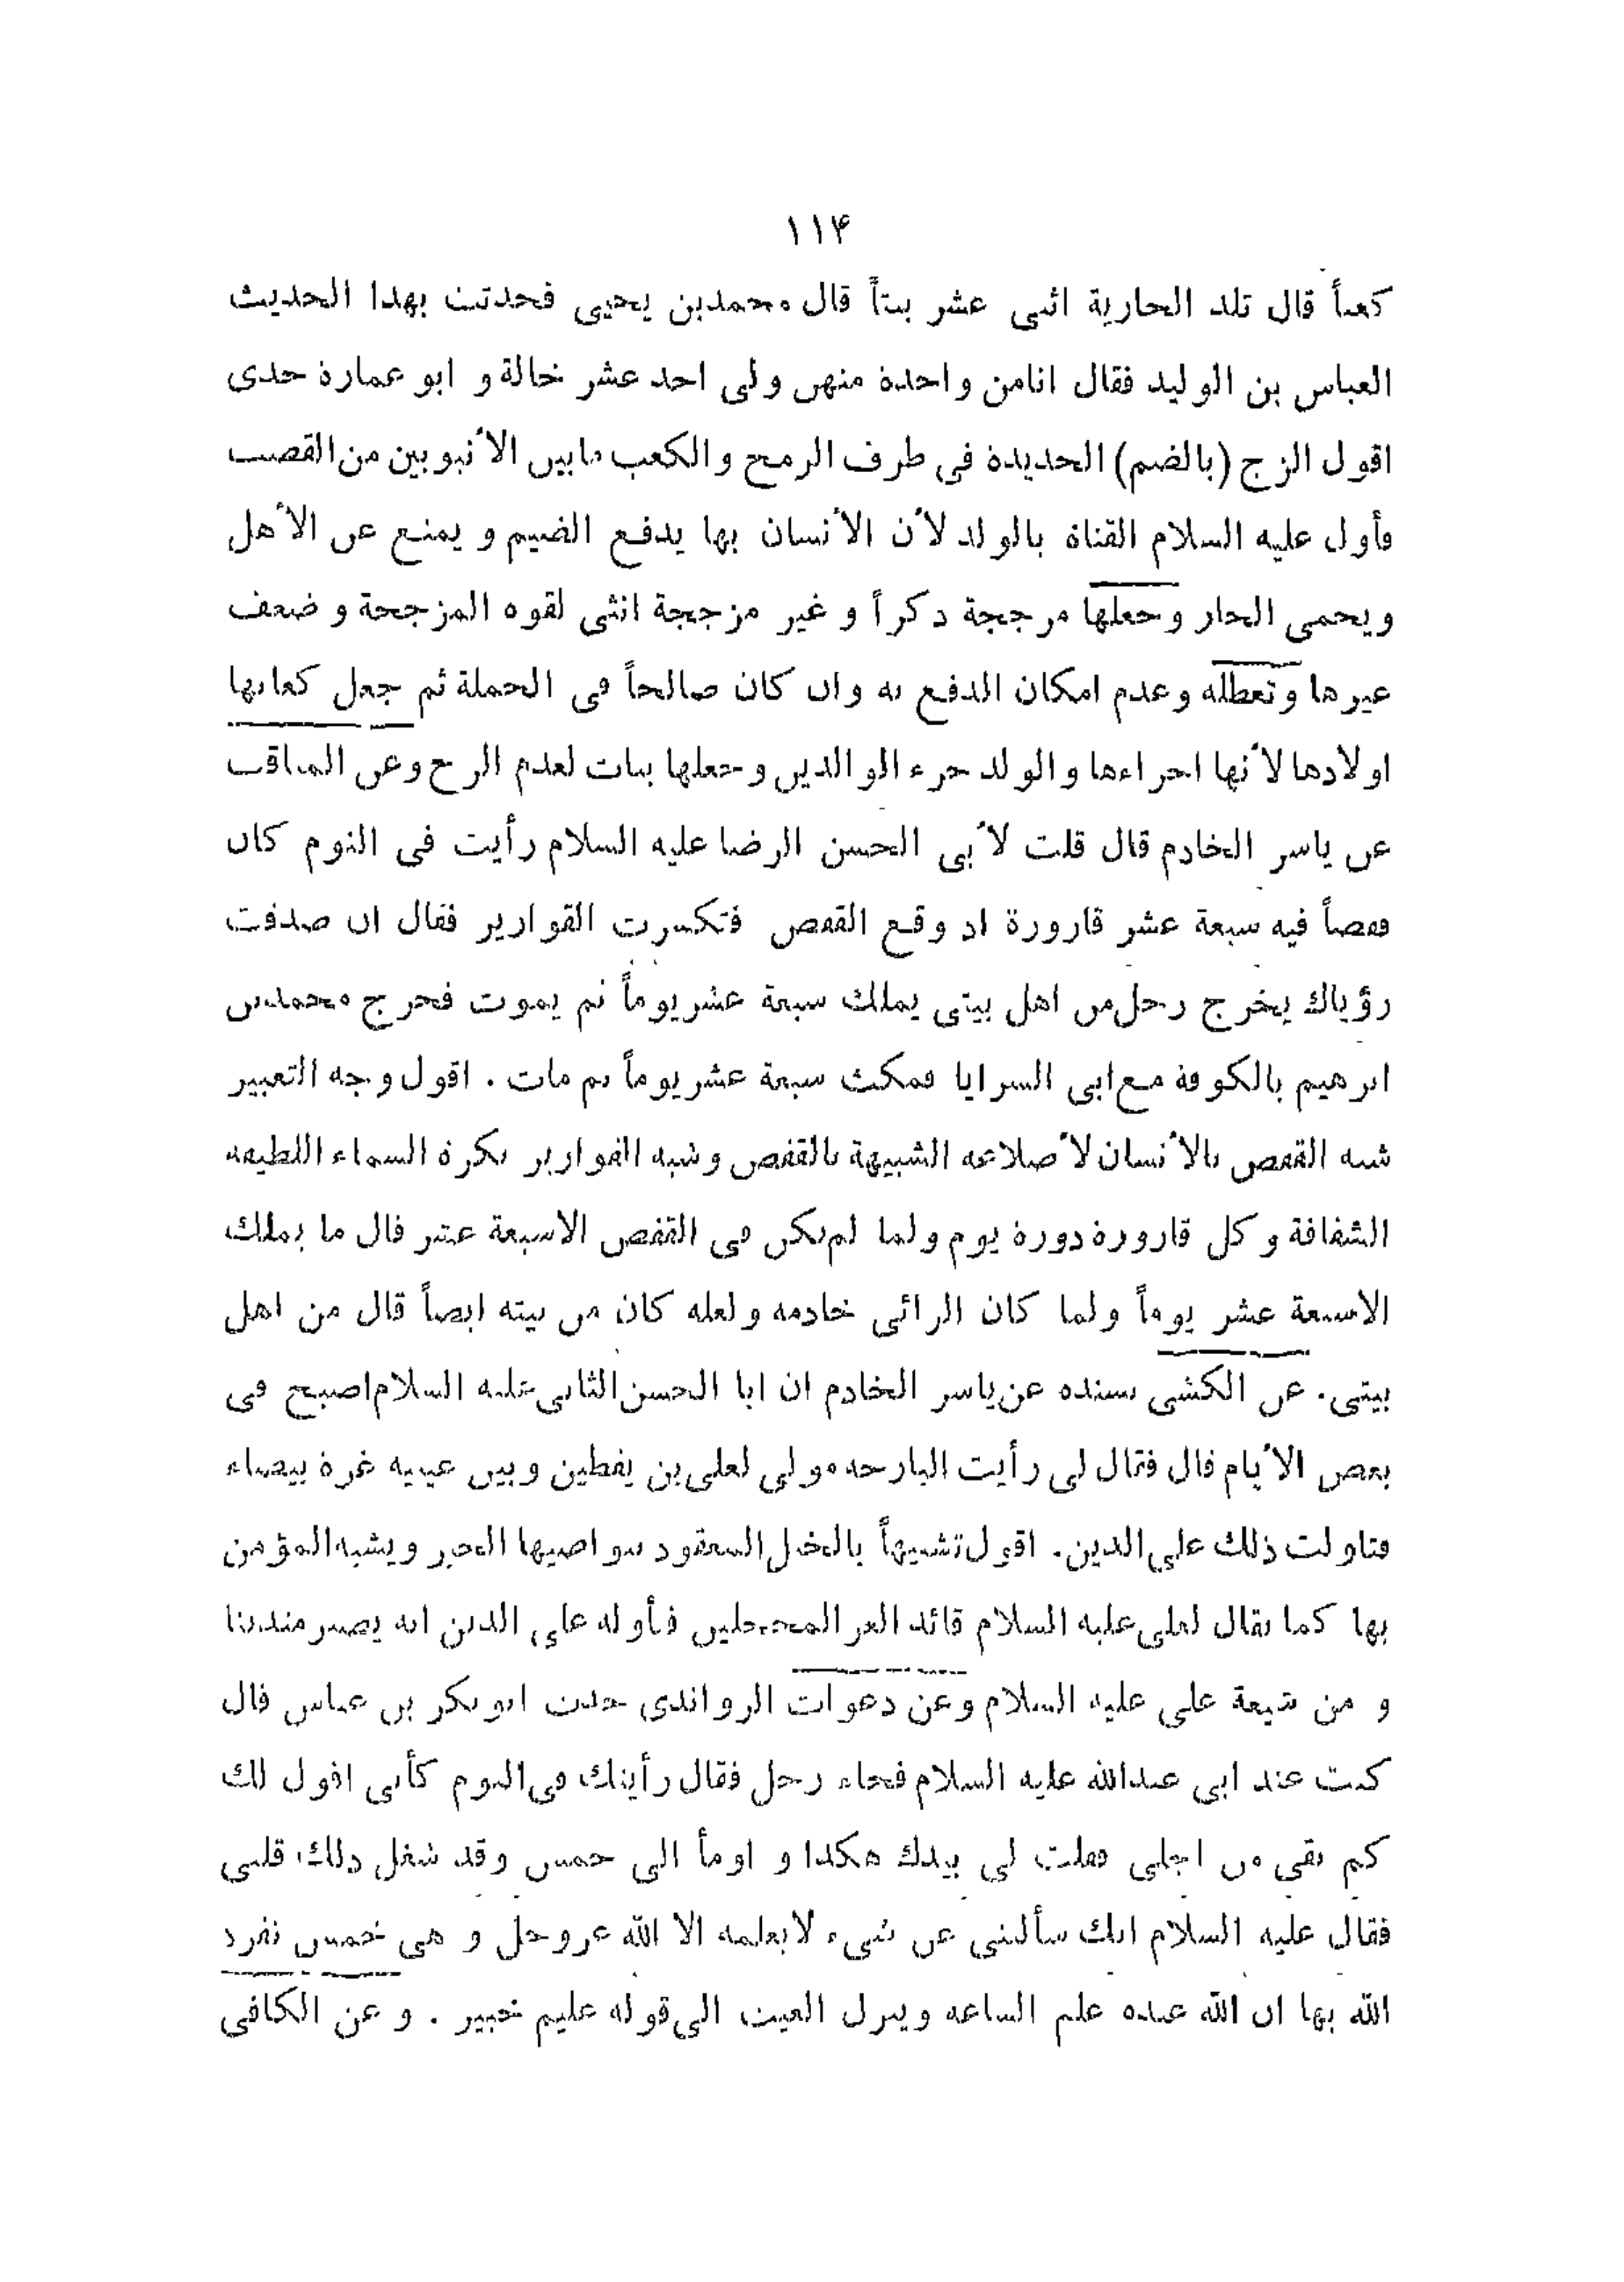 ۱۱۴
كعباً قال تلد الجارية اثنى عشر بنتاً قال محمدبن يحيى فحدثت بهذا الحديث
العباس بن الوليد فقال انامن واحدة منهن ولى احد عشر خالة و ابو عمارة جدى
اقول الزج (بالضم) الحديدة فى طرف الرمح والكعب مابين الأنبوبين من القصب
فأول عليه السلام القناة بالولد لأن الأنسان بها يدفع الضيم و يمنع عن الأهل
ويحمى الجار وجعلها مزججة ذكراً و غير مزججة انثى لقوه المزججة و ضعف
غيرها وتعطله وعدم امكان الدفع به وان كان صالحاً فى الجملة ثم جعل كعابها
اولادها لأنها اجزاءها والولد جزء الوالدين وجعلها بنات لعدم الزج وعن المناقب
عن ياسر الخادم قال قلت لأبى الحسن الرضا عليه السلام رأيت فى النوم كان
قفصاً فيه سبعة عشر قارورة اذ وقع القفص فتكسرت القوارير فقال ان صدقت
رؤياك يخرج رجل من اهل بيتى يملك سبعة عشر يوماً ثم يموت فخرج محمدبن
ابرهيم بالكوفة مع ابى السرايا فمكث سبعة عشر يوماً ثم مات . اقول وجه التعبير
شبه القفص بالأنسان لأضلاعه الشبيهة بالقفص وشبه القوارير بكرة السماء اللطيفه
الشفافة وكل قارورة دورة يوم ولما لم يكن فى القفص الاسبعة عشر قال ما يملك
الاسبعة عشر يوماً ولما كان الرائى خادمه ولعله كان من بيته ايضاً قال من اهل
بيتى. عن الكشى بسنده عن ياسر الخادم ان ابا الحسن الثانى عليه السلام اصبح فى
بعض الأيام قال فقال لى رأيت البارحه مولى لعلى بن يقطين وبين عينيه غرة بيضاء
فتاولت ذلك على الدين. اقول تشبيهاً بالخيل المعقود بنواصيها الخير ويشبه المؤمن
بها كما يقال لعلى عليه السلام قائد الغر المحجلين فأوله على الدين انه يصير متدينا
و من شيعة على عليه السلام وعن دعوات الرواندى حدث ابوبكر بن عياش قال
كنت عند ابى عبدالله عليه السلام فجاء رجل فقال رأيتك فى النوم كأنى اقول لك
كم بقى من اجلى فقلت لى بيدك هكذا و اومأ الى خمس وقد شغل ذلك قلبى
فقال عليه السلام انك سألتنى عن شىء لايعلمه الا الله عزوجل و هى خمس تفرد
الله بها ان الله عنده علم الساعه وينزل الغيث الى قوله عليم خبير . و عن الكافى